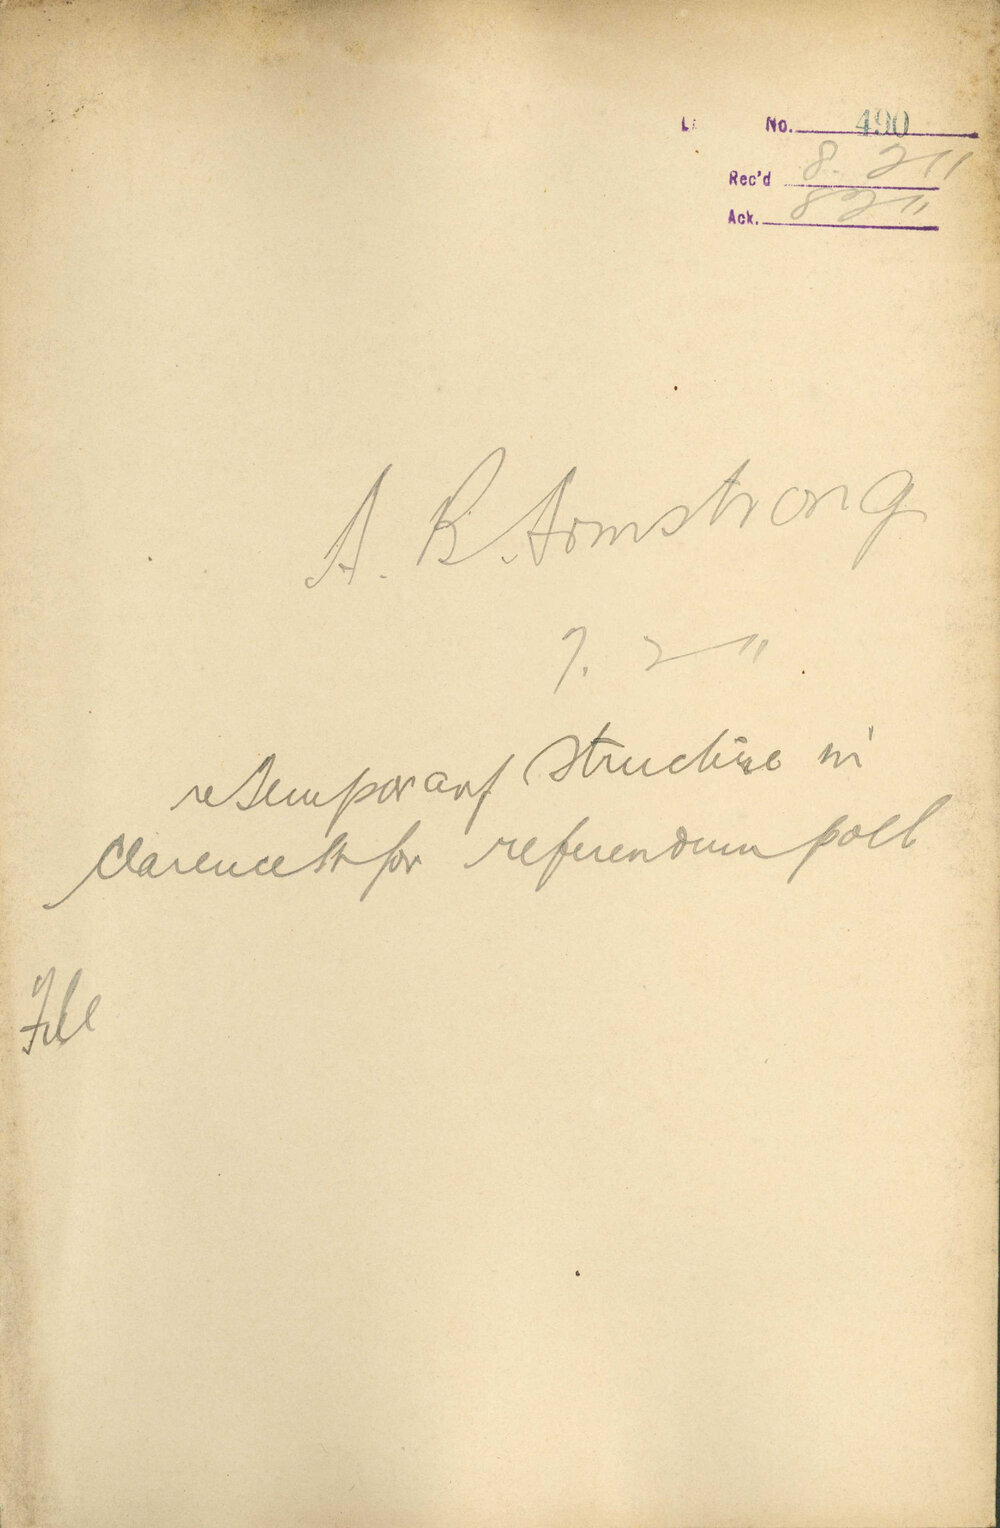 No. 490
Rec'd 8. 2 11
Ack. 8 2 11
A. B. Armstrong
7. 2 11
re temporary structure in
Clarence St for referendum poll
File